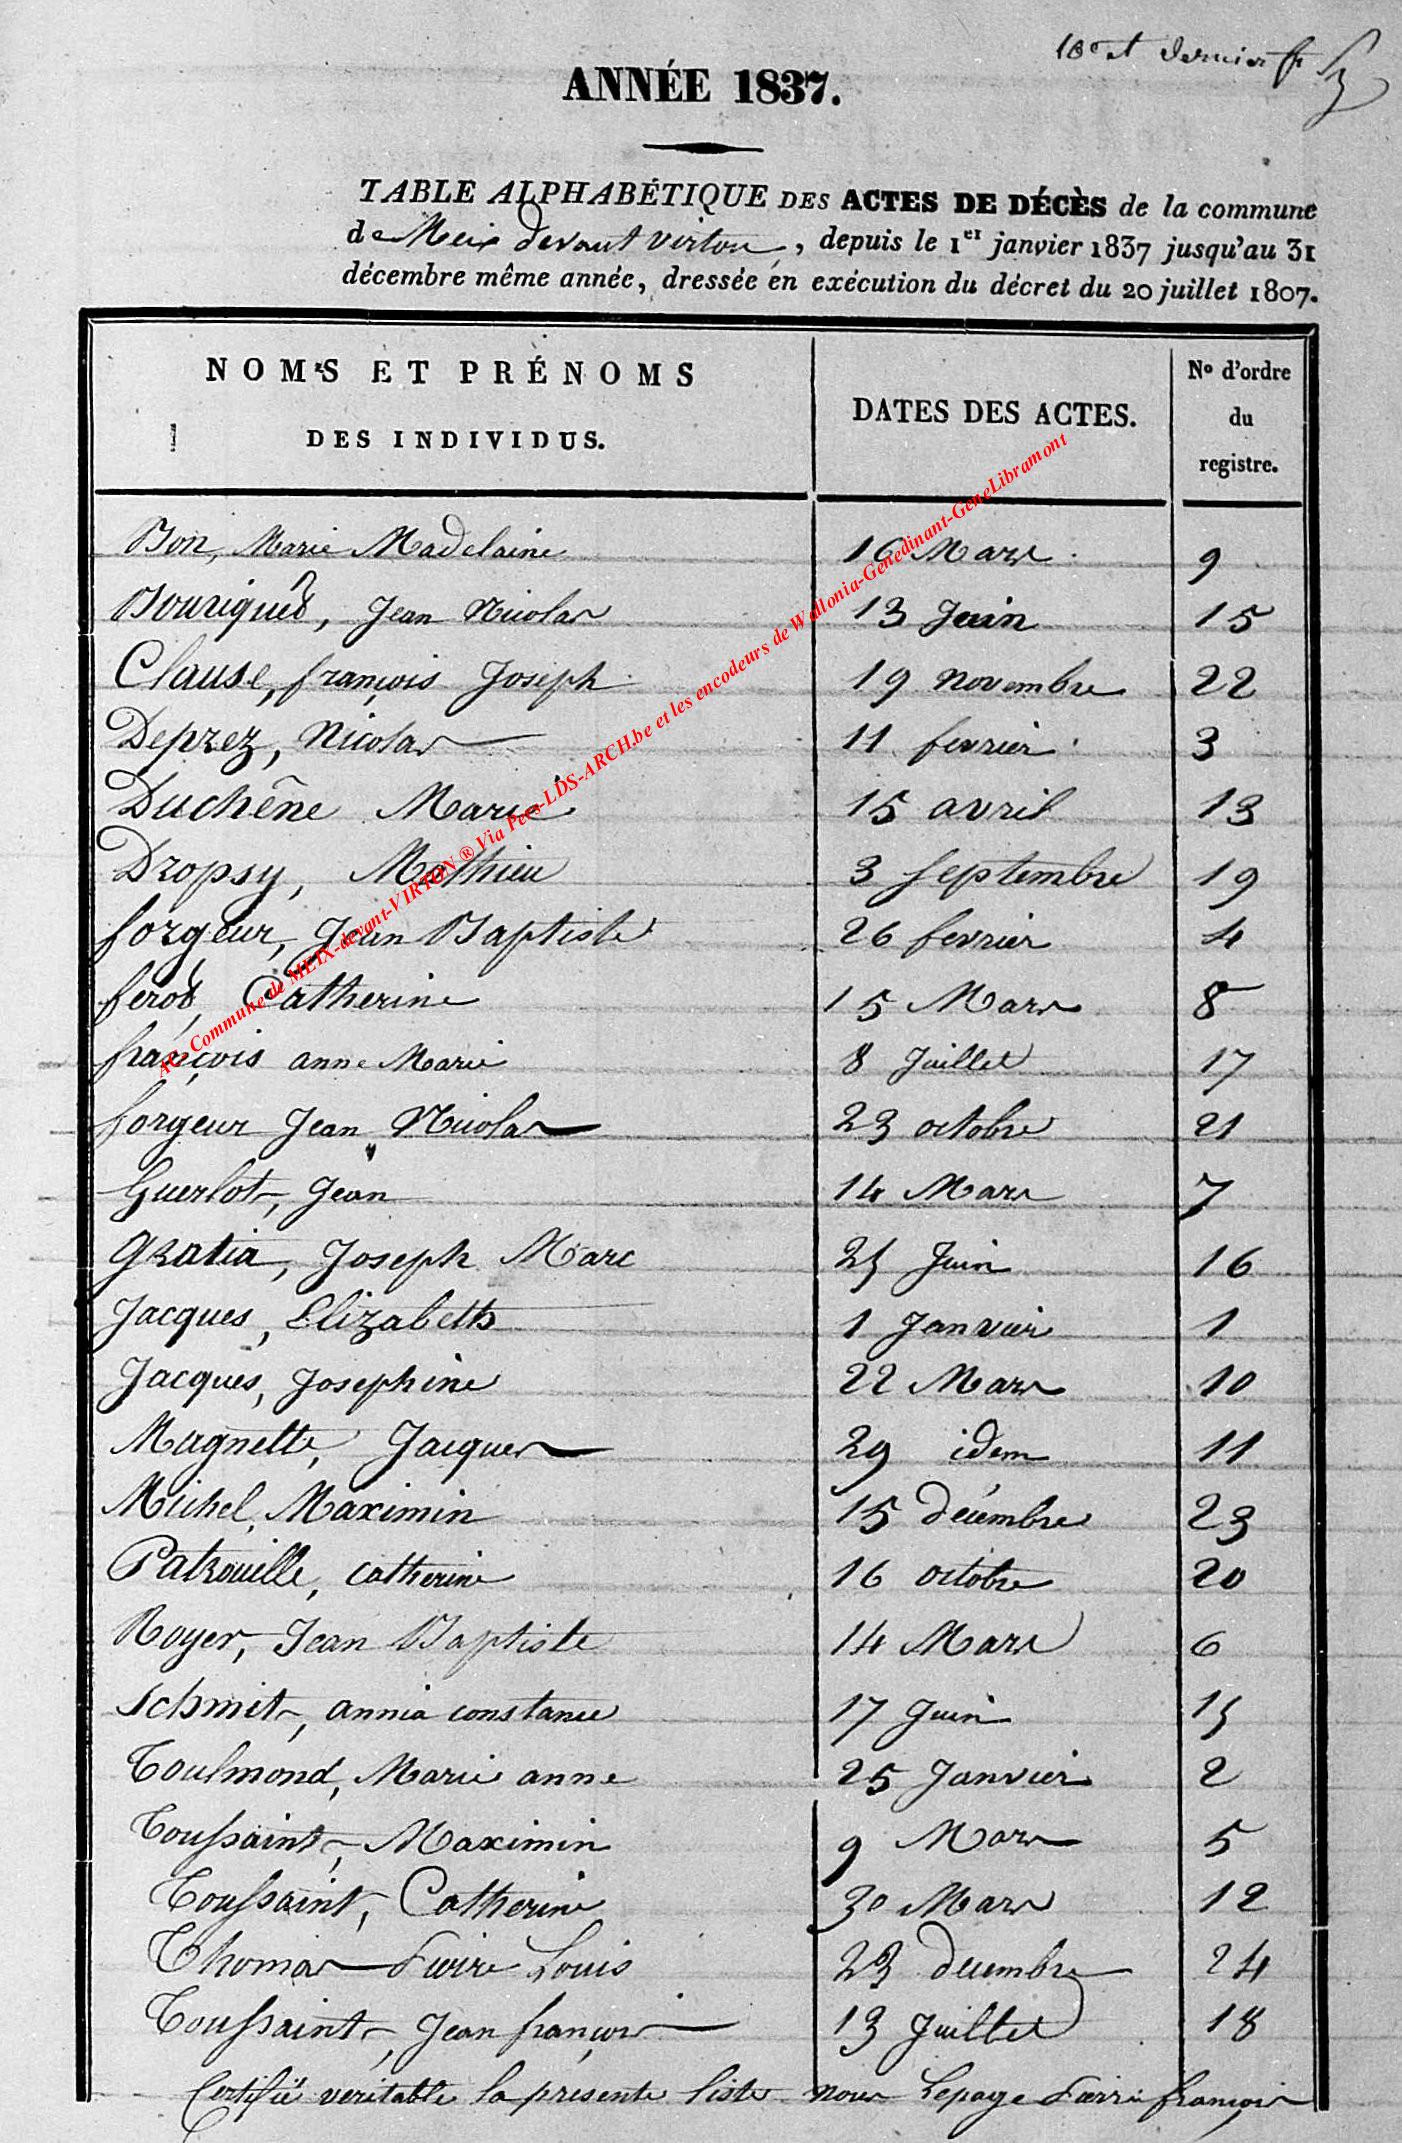 10e et dernier f
ANNÉE 1837.
TABLE ALPHABÉTIQUE DES ACTES DE DÉCÈS de la commune
de Meix devant virton, depuis le 1er janvier 1837 jusqu'au 31
décembre même année, dressée en exécution du décret du 20 juillet 1807.
NOMS ET PRÉNOMS
DES INDIVIDUS.
DATES DES ACTES.
No d'ordre
du
registre.
Bon, Marie Madelaine 16 Mars 9
Bouriqué, Jean Nicolas 13 Juin 15
Clause, françois Joseph 19 novembre 22
Deprez, Nicolas 11 fevrier 3
Duchêne Marie 15 avril 13
Dropsy, Mathieu 3 septembre 19
forgeur, Jean Baptiste 26 fevrier 4
ferod, Catherine 15 Mars 8
françois anne Marie 8 Juillet 17
forgeur Jean Nicolas 23 octobre 21
Guerlot, Jean 14 Mars 7
Gratia, Joseph Marc 25 Juin 16
Jacques, Elizabeth 1 Janvier 1
Jacques, Josephine 22 Mars 10
Magnette, Jacques 29 idem 11
Michel, Maximin 15 décembre 23
Patrouille, catherine 16 octobre 20
Royer, Jean Baptiste 14 Mars 6
Schmit, annia constance 17 Juin 15
Toulmond, Marie anne 25 Janvier 2
Toussaint, Maximin 9 Mars 5
Toussaint, Catherine 30 Mars 12
Thomas Pierre Louis 23 decembre 24
Toussaint, Jean françois 13 Juillet 18
Certifié veritable la presente liste nous Lepage Pierre françois
AC. Commune de MEIX-devant-VIRTON ® Via Pers-LDS-ARCH.be et les encodeurs de Wallonia-Genedinant-GeneLibramont